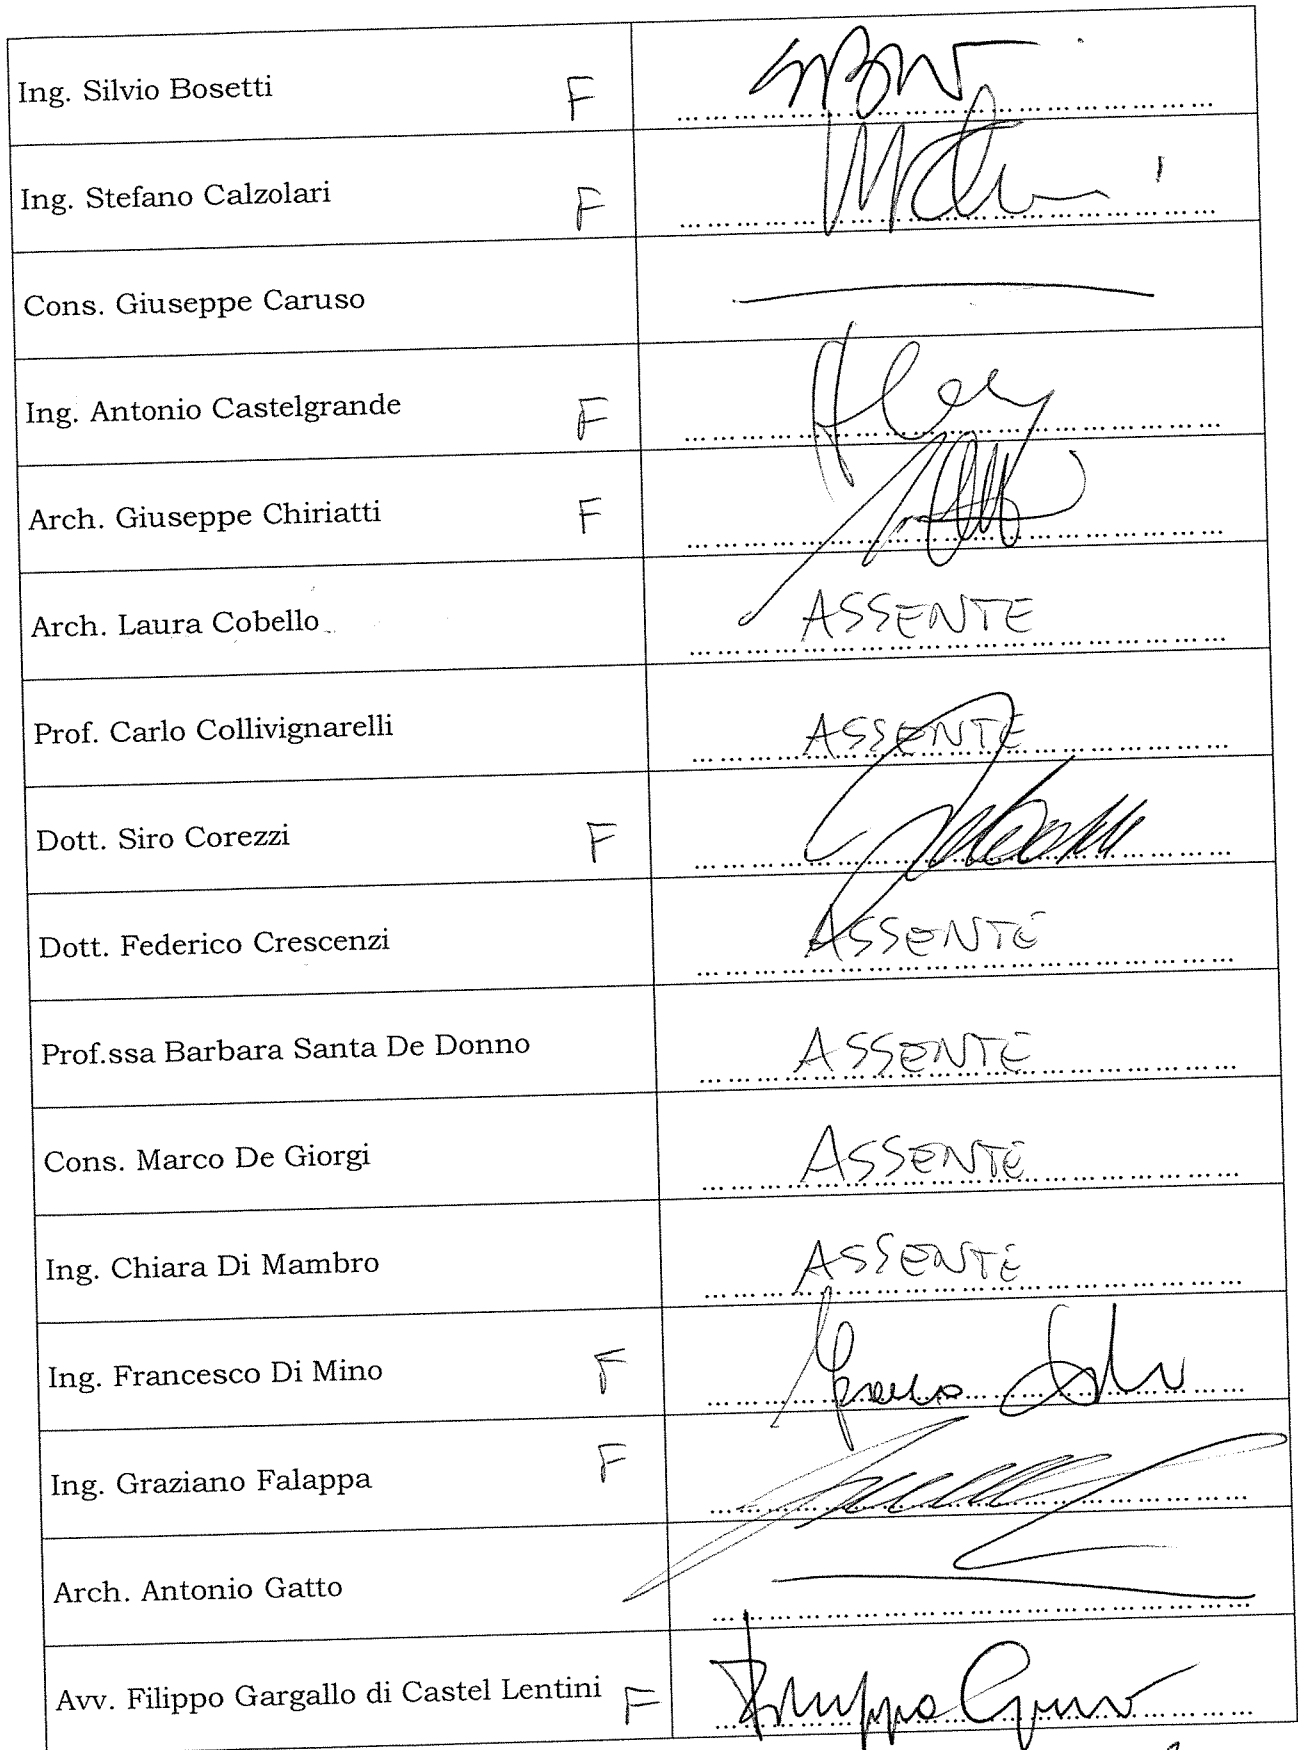 Ing. Silvio Bosetti F
Ing. Stefano Calzolari F
Cons. Giuseppe Caruso
Ing. Antonio Castelgrande F
Arch. Giuseppe Chiriatti F
Arch. Laura Cobello ASSENTE
Prof. Carlo Collivignarelli ASSENTE
Dott. Siro Corezzi F
Dott. Federico Crescenzi ASSENTE
Prof.ssa Barbara Santa De Donno ASSENTE
Cons. Marco De Giorgi ASSENTE
Ing. Chiara Di Mambro ASSENTE
Ing. Francesco Di Mino F
Ing. Graziano Falappa F
Arch. Antonio Gatto
Avv. Filippo Gargallo di Castel Lentini F